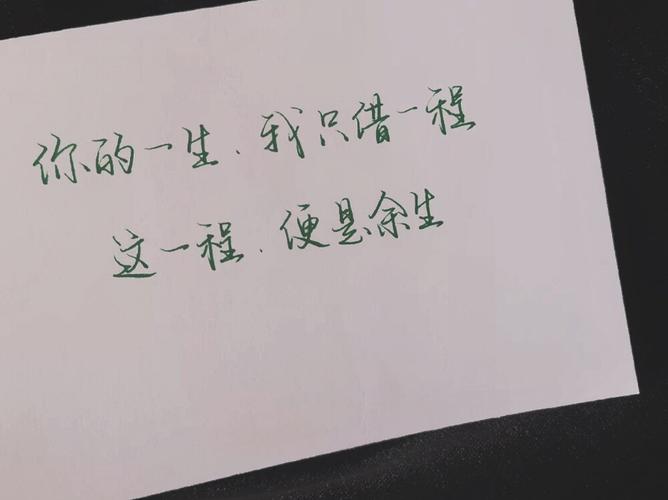 你的一生、我只借一程
这一程、便是余生